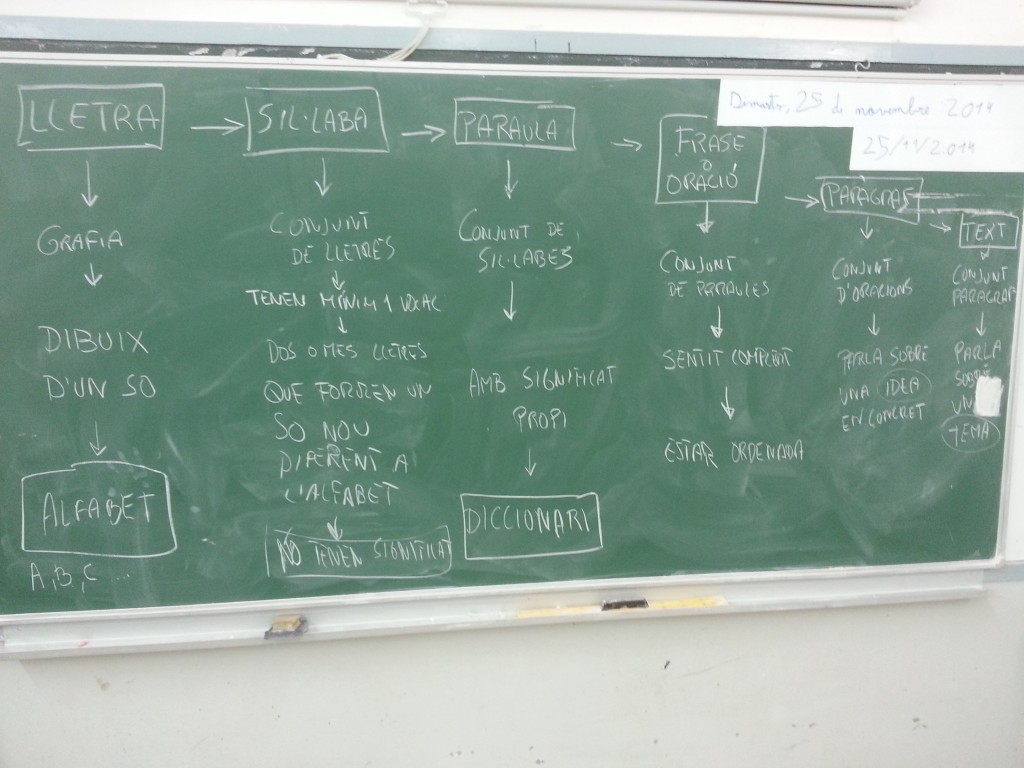 Dimarts, 25 de novembre 2014
25/11/2014
LLETRA
GRAFIA
DIBUIX
D'UN SO
ALFABET
A, B, C ...
SIL·LABA
CONJUNT
DE LLETRES
TENEN MÍNIM 1 VOCAL
DOS O MES LLETRES
QUE FORMEN UN
SO NOU
DIFERENT A
L'ALFABET
NO TENEN SIGNIFICAT
PARAULA
CONJUNT DE
SIL·LABES
AMB SIGNIFICAT
PROPI
DICCIONARI
FRASE
O
ORACIÓ
CONJUNT
DE PARAULES
SENTIT COMPLERT
ESTAR ORDENADA
PARÀGRAF
CONJUNT
D'ORACIONS
PARLA SOBRE
UNA IDEA
EN CONCRET
TEXT
CONJUNT
PARAGRAF
PARLA
SOBRE
UN
TEMA